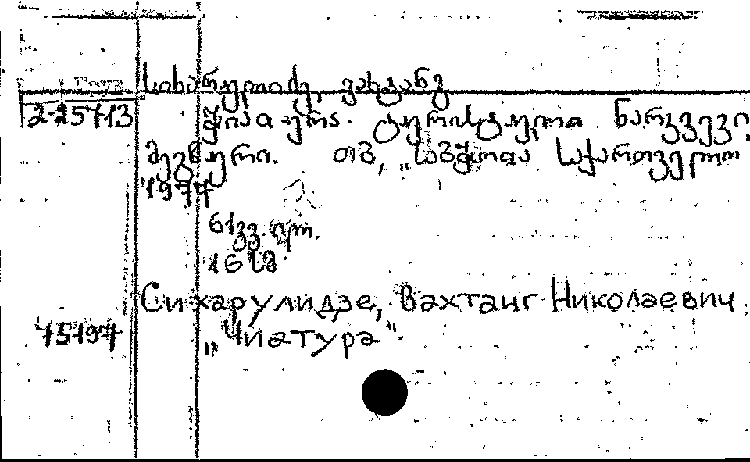 სიხარულიძე, ვახტანგ
2-25713 ჭიათურა. ტურისტული ნარკვევი
მეგზური. თბ., „საბჭოთა საქართველო“
1977
61 გვ. ილ.
16 სმ.
Сихарулидзе, Вахтанг Николаевич.
75197 „Чиатура“.